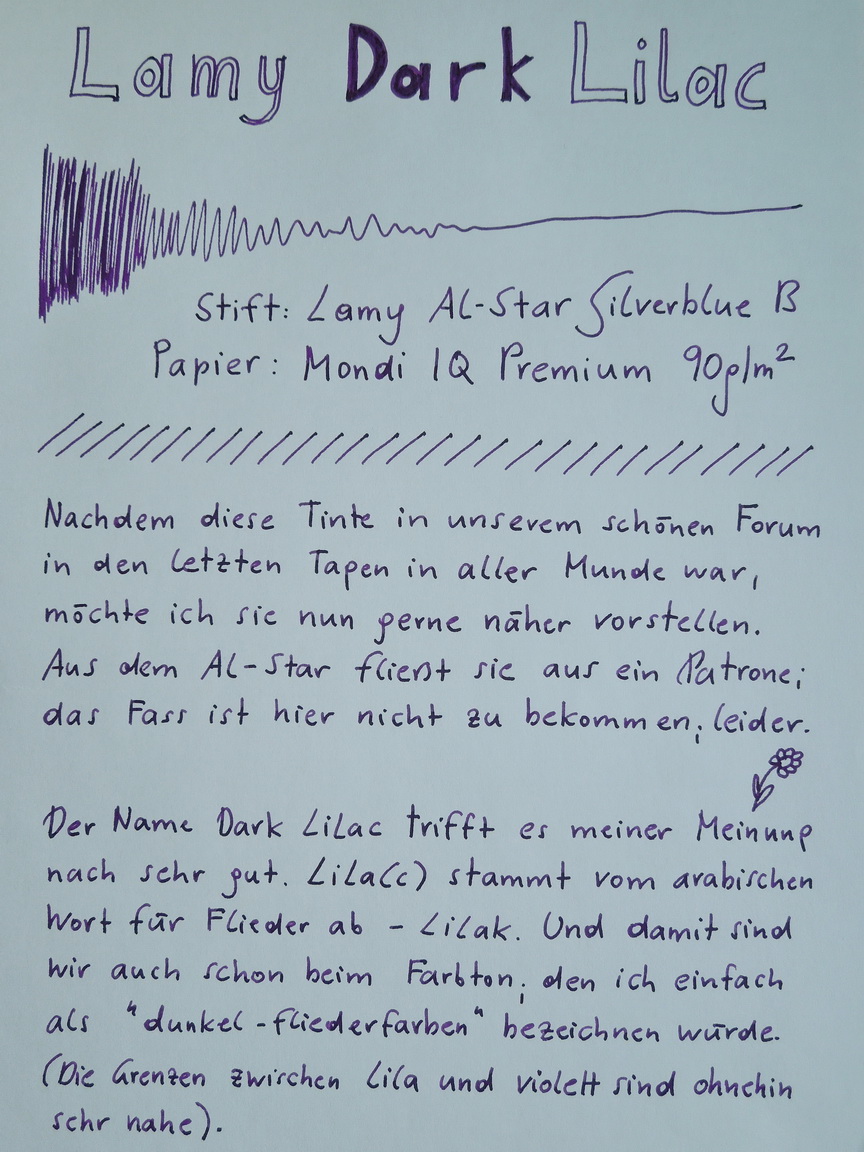 Lamy Dark Lilac
Stift: Lamy AL-Star Silverblue B
Papier: Mondi IQ Premium 90g/m²
Nachdem diese Tinte in unserem schönen Forum
in den letzten Tagen in aller Munde war,
möchte ich sie nun gerne näher vorstellen.
Aus dem AL-Star fließt sie aus ein Patrone;
das Fass ist hier nicht zu bekommen, leider.
Der Name Dark Lilac trifft es meiner Meinung
nach sehr gut. Lila(c) stammt vom arabischen
Wort für Flieder ab - Lilak. Und damit sind
wir auch schon beim Farbton, den ich einfach
als "dunkel-fliederfarben" bezeichnen würde.
(Die Grenzen zwischen Lila und violett sind ohnehin
sehr nahe).